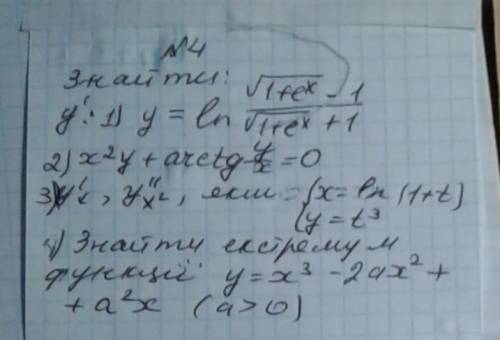 №4
Знайти:
y': 1) y = ln (√(1+eˣ) - 1)/(√(1+eˣ) + 1)
2) x²y + arctg y/x = 0
3) y'ₓ, y''ₓ², якщо {x = ln(1+t)
{y = t³
4) Знайти екстремум
функції y = x³ - 2ax² +
+ a²x (a>0)